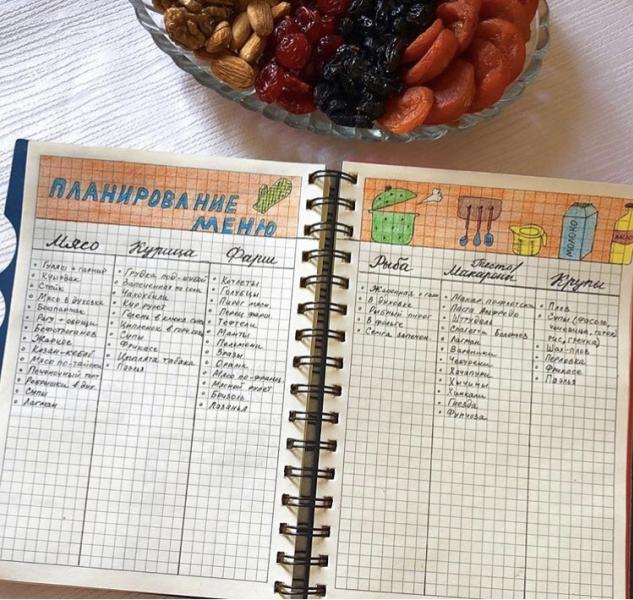 ПЛАНИРОВАНИЕ
МЕНЮ
Мясо
Гуляш + гарнир
Куырдак
Стейк
Мясо в духовке
Бешпармак
Рагу - овощи
Бефстроганов
Жаркое
Казан-кебаб
Мясо по-тайски
Печеночный торт
Ребрышки в дух.
Супы
Лагман
Курица
Грудка под
Запеченная
Чахохбили
Кур. рулет
Паста в
Цыпленок в
Супы
Фрикасе
Цыплята табака
Паэлья
Фарш
Котлеты
Голубцы
Пирог мясн.
Перец фарш.
Тефтели
Манты
Пельмени
Зразы
Орама
Мясо по-франц.
Мясной рулет
Бризоль
Лазанья
Рыба
Жаренная + гарн
В духовке
Рыбный пирог
В фольге
Семга запечен.
Тесто/
Макароны
Макар. по-флотски
Паста Альфредо
Штрудель
Спагетти Болонез
Лагман
Вареники
Чебуреки
Хачапури
Хычины
Хинкали
Гнезда
Фунчоза
МОЛОКО
Крупы
Плов
Супы (фасоль,
чечевица, горох
рис, гречка)
Шах-плов
Перловка
Фрикасе
Паэлья